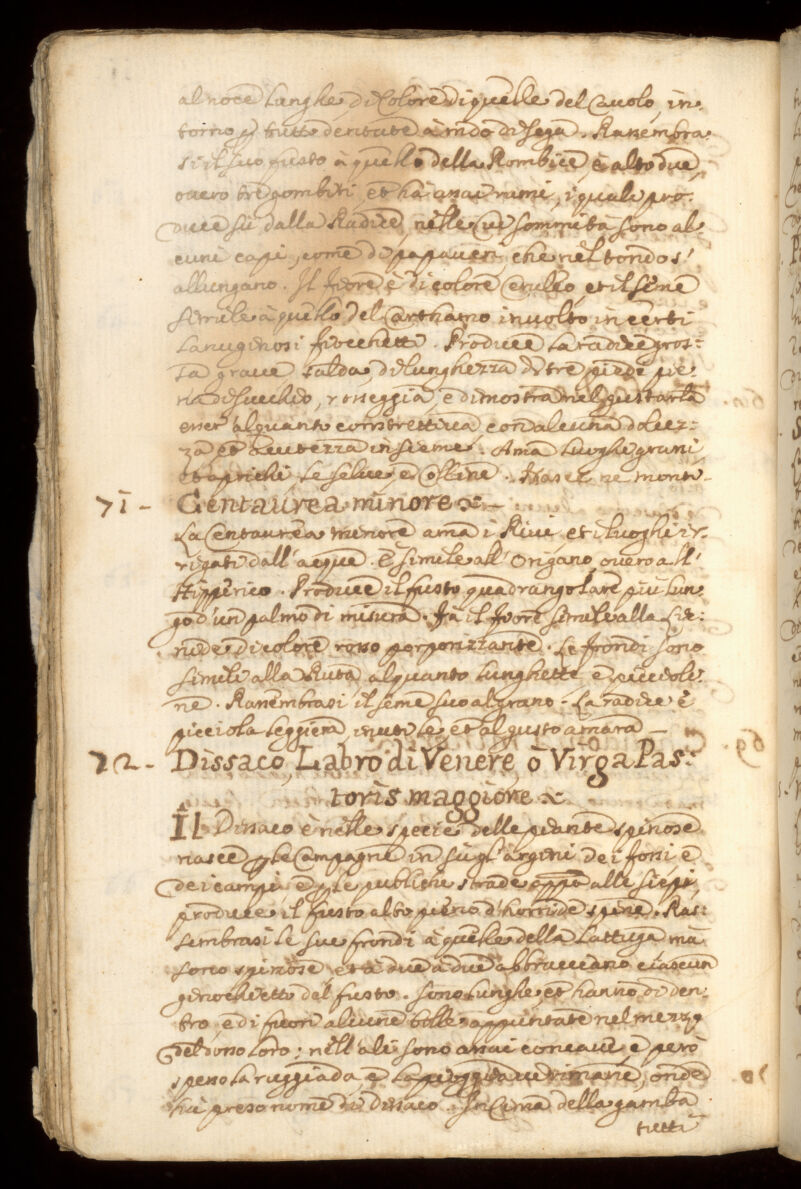 al noce lunghe, di Colore di quelle del Cauolo, in
torno p tutto dentate à modo di sega. Rassembra
si il suo fusto à quello della Rombice, è alto due,
ouero tre gombiti, et hà assai rami, i quali pro
duce sù dalla Radice, nelle cui sommità sono al
cuni capi, come di papaueri, che nel tondo s'
allungano. Il fiore è di colore Ceruleo, et il seme
simile à quello del Carthamo inuolto in certi
lanuginosi fiocchetti. Produce la radice gros:
sa graue, salda, di lunghezza di tre piedi pie
na di succhio, rosseggia, e dimostra nel gustarla
esser alquanto constrettiua con alcuna dolcez:
za et acutezza insieme. Ama luoghi grassi
et aprichi, le selue, e Colline. Nasce ne monti-
71 - Centaurea minore
La Centaurea minore ama i Riui, et i luoghi ir
rigati dall'acque. È simile all'Origano, ouero all'
Hipperico. Produce il fusto quadrangolare più lun
go d'un palmo di misura. Fà il fiore simile alla Lic:
nide di colore rosso porporizzante. Le frondi sono
simili alla Ruta, alquanto lunghette, e picciole:
ne. Rassembrasi il seme suo al grano. La radice è
picciola leggiera, inutile, et al gusto amara —
72 - Dissaco, Labro di Venere, ò Virga Pas:
toris maggiore
Il Dissaco è nelle specie delle piante spinose
nasce p le Campagne in sù gl'argini de i fossi e
de i campi e p le publiche strade appo alle siepi,
produce il fusto alto pieno d'horride spine. Ras:
sembrasi le sue frondi à quelle della Lattuga mà
sono spinose et à due à due abbracciano ciascun
ginocchietto del fusto. Sono lunghe, et hanno di den:
tro, e di fuori alcune bolle appuntate nel mezzo
del dosso loro; nell'ali sono assai concaue, e però
spesso la ruggiada, e la pioggia ui rimane, onde
hà preso nome di dissaco. In Cima della gamba
tutti